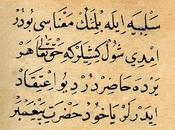 سلبيه ايله بلمنك معناسى بودر
امدى شول كشيلر كه حق تعالى هر
يرده حاضر در ديو اعتقاد
ايدرلر ياخود حضرت پيغمبر